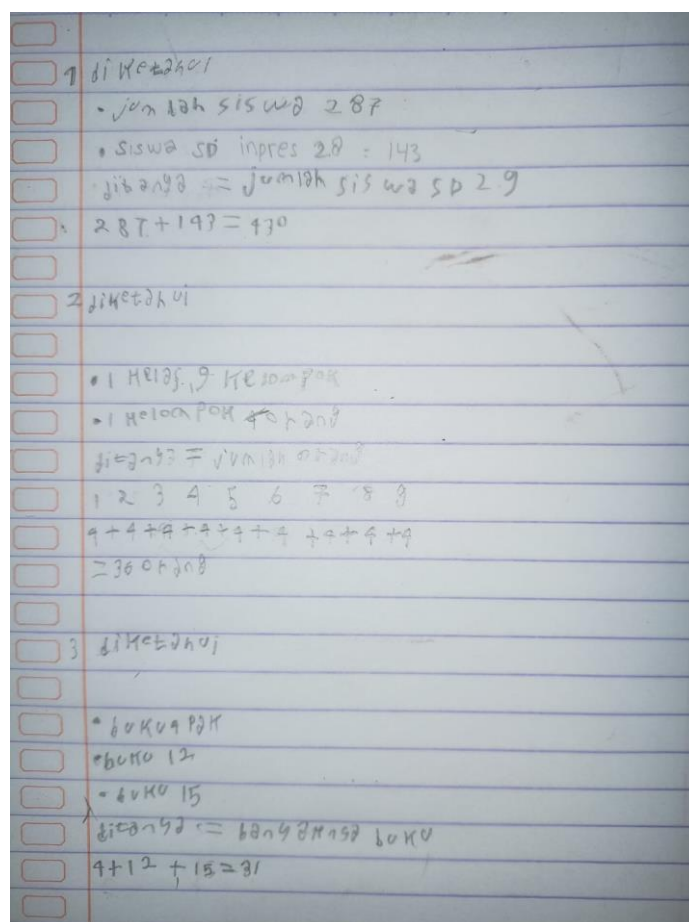 1 diketahui
• jumlah siswa 287
• siswa SD inpres 28 = 143
ditanya = jumlah siswa SD 29
287 + 143 = 430
2 diketahui
• 1 kelas, 9 kelompok
• 1 kelompok 4 orang
ditanya = jumlah orang
1 2 3 4 5 6 7 8 9
4+4+4+4+4+4+4+4+4
= 36 orang
3 diketahui
• buku 4 pak
• buku 12
• buku 15
ditanya = banyaknya buku
4+12+15=31